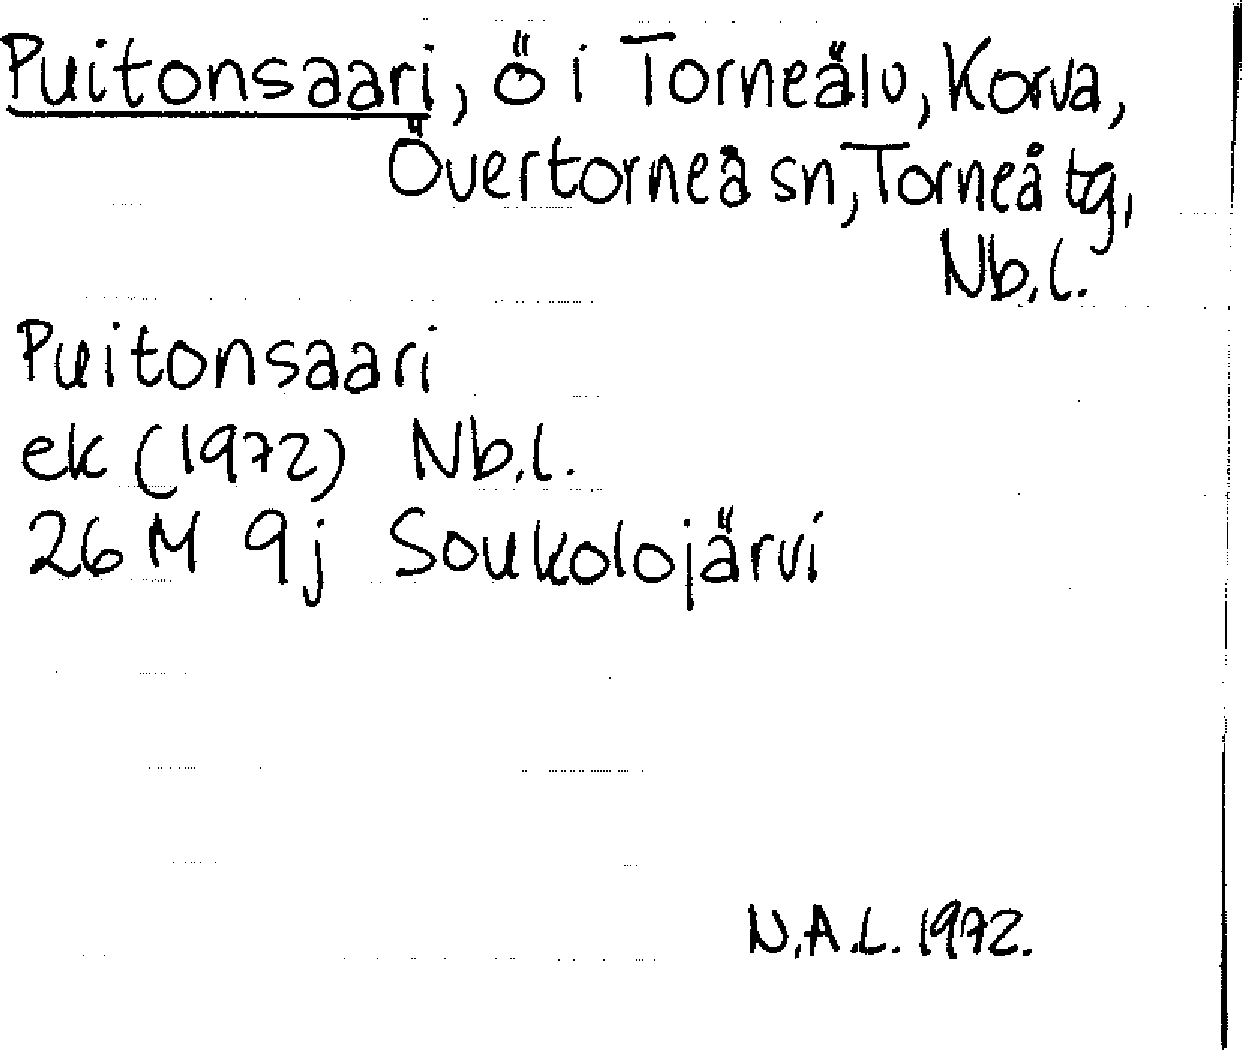 Puitonsaari, ö i Torneälv, Korva,
Övertorneå sn, Torneå tg,
Nb.l.
Puitonsaari
ek (1972) Nb.l.
26 M 9j Soukolojärvi
N.A.L. 1972.